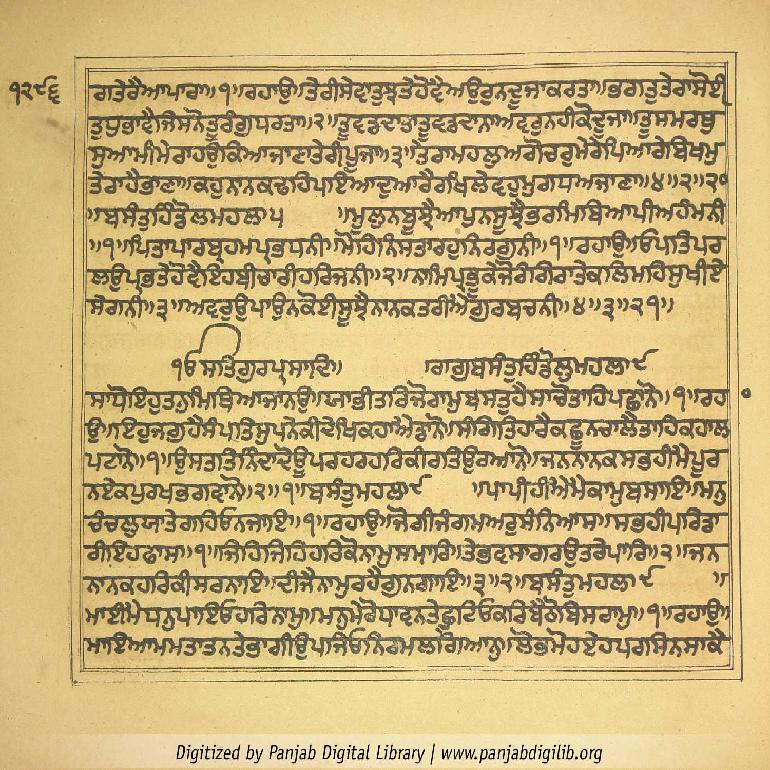 ੧੨੮੬
ਗਤੇਰੈਅਪਾਰਾ॥੧॥ਰਹਾਉ॥ਤੇਰੀਸੇਵਾਤੁਝਤੇਹੋਵੈਅਉਰੁਨਦੂਜਾਕਰਤਾ॥ਭਗਤੁਤੇਰਾਸੋਈ
ਤੁਧੁਭਾਵੈਜਿਸਨੋਤੂਰੰਗੁਧਰਤਾ॥੨॥ਤੂਵਡਦਾਤਾਤੂਵਡਦਾਨਾਅਵਰੁਨਹੀਕੋਦੂਜਾ॥ਤੂਸਮਰਥੁ
ਸੁਆਮੀਮੇਰਾਹਉਕਿਆਜਾਣਾਤੇਰੀਪੂਜਾ॥੩॥ਤੇਰਾਮਹਲੁਅਗੋਚਰੁਮੇਰੇਪਿਆਰੇਬਿਖਮੁ
ਤੇਰਾਹੈਭਾਣਾ॥ਕਹੁਨਾਨਕਢਹਿਪਇਆਦੁਆਰੈਰਖਿਲੇਵਹੁਮੁਗਧਅਜਾਣਾ॥੪॥੨॥੨੦
॥ਬਸੰਤੁਹਿੰਡੋਲਮਹਲਾ੫ ॥ਮੂਲੁਨਬੂਝੈਆਪੁਨਸੂਝੈਭਰਮਿਬਿਆਪੀਅਹੰਮਨੀ
॥੧॥ਪਿਤਾਪਾਰਬ੍ਰਹਮਪ੍ਰਭਧਨੀ॥ਮੋਹਿਨਿਸਤਾਰਹੁਨਿਰਗੁਨੀ॥੧॥ਰਹਾਉ॥ਓਪਤਿਪਰ
ਲਉਪ੍ਰਭਤੇਹੋਵੈਇਹਬੀਚਾਰੀਹਰਿਜਨੀ॥੨॥ਨਾਮਪ੍ਰਭੂਕੇਜੋਰੰਗਿਰਾਤੇਕਲਿਮਹਿਸੁਖੀਏ
ਸੇਗਨੀ॥੩॥ਅਵਰੁਉਪਾਉਨਕੋਈਸੂਝੈਨਾਨਕਤਰੀਐਗੁਰਬਚਨੀ॥੪॥੩॥੨੧॥
ੴਸਤਿਗੁਰਪ੍ਰਸਾਦਿ॥ ਰਾਗੁਬਸੰਤੁਹਿੰਡੋਲੁਮਹਲਾ੯
ਸਾਧੋਇਹੁਤਨੁਮਿਥਿਆਜਾਨਉ॥ਯਾਭੀਤਰਿਜੋਰਾਮੁਬਸਤੁਹੈਸਾਚੋਤਾਹਿਪਛਾਨੋ॥੧॥ਰਹਾ
ਉ॥ਇਹੁਜਗੁਹੈਸੰਪਤਿਸੁਪਨੇਕੀਦੇਖਿਕਹਾਐਡਾਨੋ॥ਸੰਗਿਤਿਹਾਰੈਕਛੂਨਚਾਲੈਤਾਹਿਕਹਾਲ
ਪਟਾਨੋ॥੧॥ਉਸਤਤਿਨਿੰਦਾਦੋਊਪਰਹਰਹਰਿਕੀਰਤਿਉਰਆਨੋ॥ਜਨਨਾਨਕਸਭਹੀਮੈਪੂਰ
ਨਏਕਪੁਰਖਭਗਵਾਨੋ॥੨॥੧॥ਬਸੰਤੁਮਹਲਾ੯ ॥ਪਾਪੀਹੀਐਮੈਕਾਮੁਬਸਾਇ॥ਮਨੁ
ਚੰਚਲੁਯਾਤੇਗਹਿਓਨਜਾਇ॥੧॥ਰਹਾਉ॥ਜੋਗੀਜੰਗਮਅਰੁਸੰਨਿਆਸ॥ਸਭਹੀਪਰਿਡਾ
ਰੀਇਹਫਾਸ॥੧॥ਜਿਹਿਜਿਹਿਹਰਿਕੋਨਾਮੁਸਮਾਰਿ॥ਤੇਭਵਸਾਗਰਉਤਰੇਪਾਰਿ॥੨॥ਜਨ
ਨਾਨਕਹਰਿਕੀਸਰਨਾਇ॥ਦੀਜੈਨਾਮੁਰਹੈਗੁਨਗਾਇ॥੩॥੨॥ਬਸੰਤੁਮਹਲਾ੯ ॥
ਮਾਈਮੈਧਨੁਪਾਇਓਹਰਿਨਾਮੁ॥ਮਨੁਮੇਰੋਧਾਵਨਤੇਛੂਟਿਓਕਰਿਬੈਠੋਬਿਸਰਾਮੁ॥੧॥ਰਹਾਉ॥
ਮਾਇਆਮਮਤਾਤਨਤੇਭਾਗੀਉਪਜਿਓਨਿਰਮਲਗਿਆਨੁ॥ਲੋਭਮੋਹਏਹਪਰਸਿਨਸਾਕੈ
Digitized by Panjab Digital Library | www.panjabdigilib.org